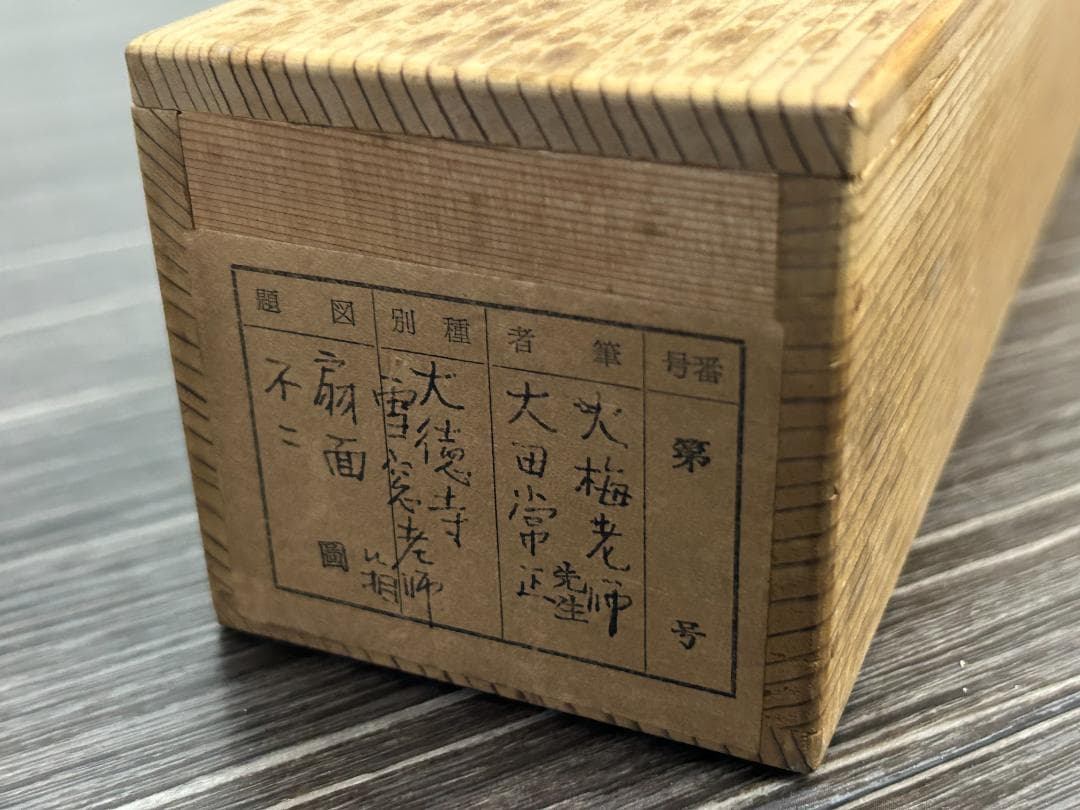 番号
第 号
筆者
大梅老师
大田常正先生
種別
大徳寺
雪窓老师箱
図題
扇面
不二
圖